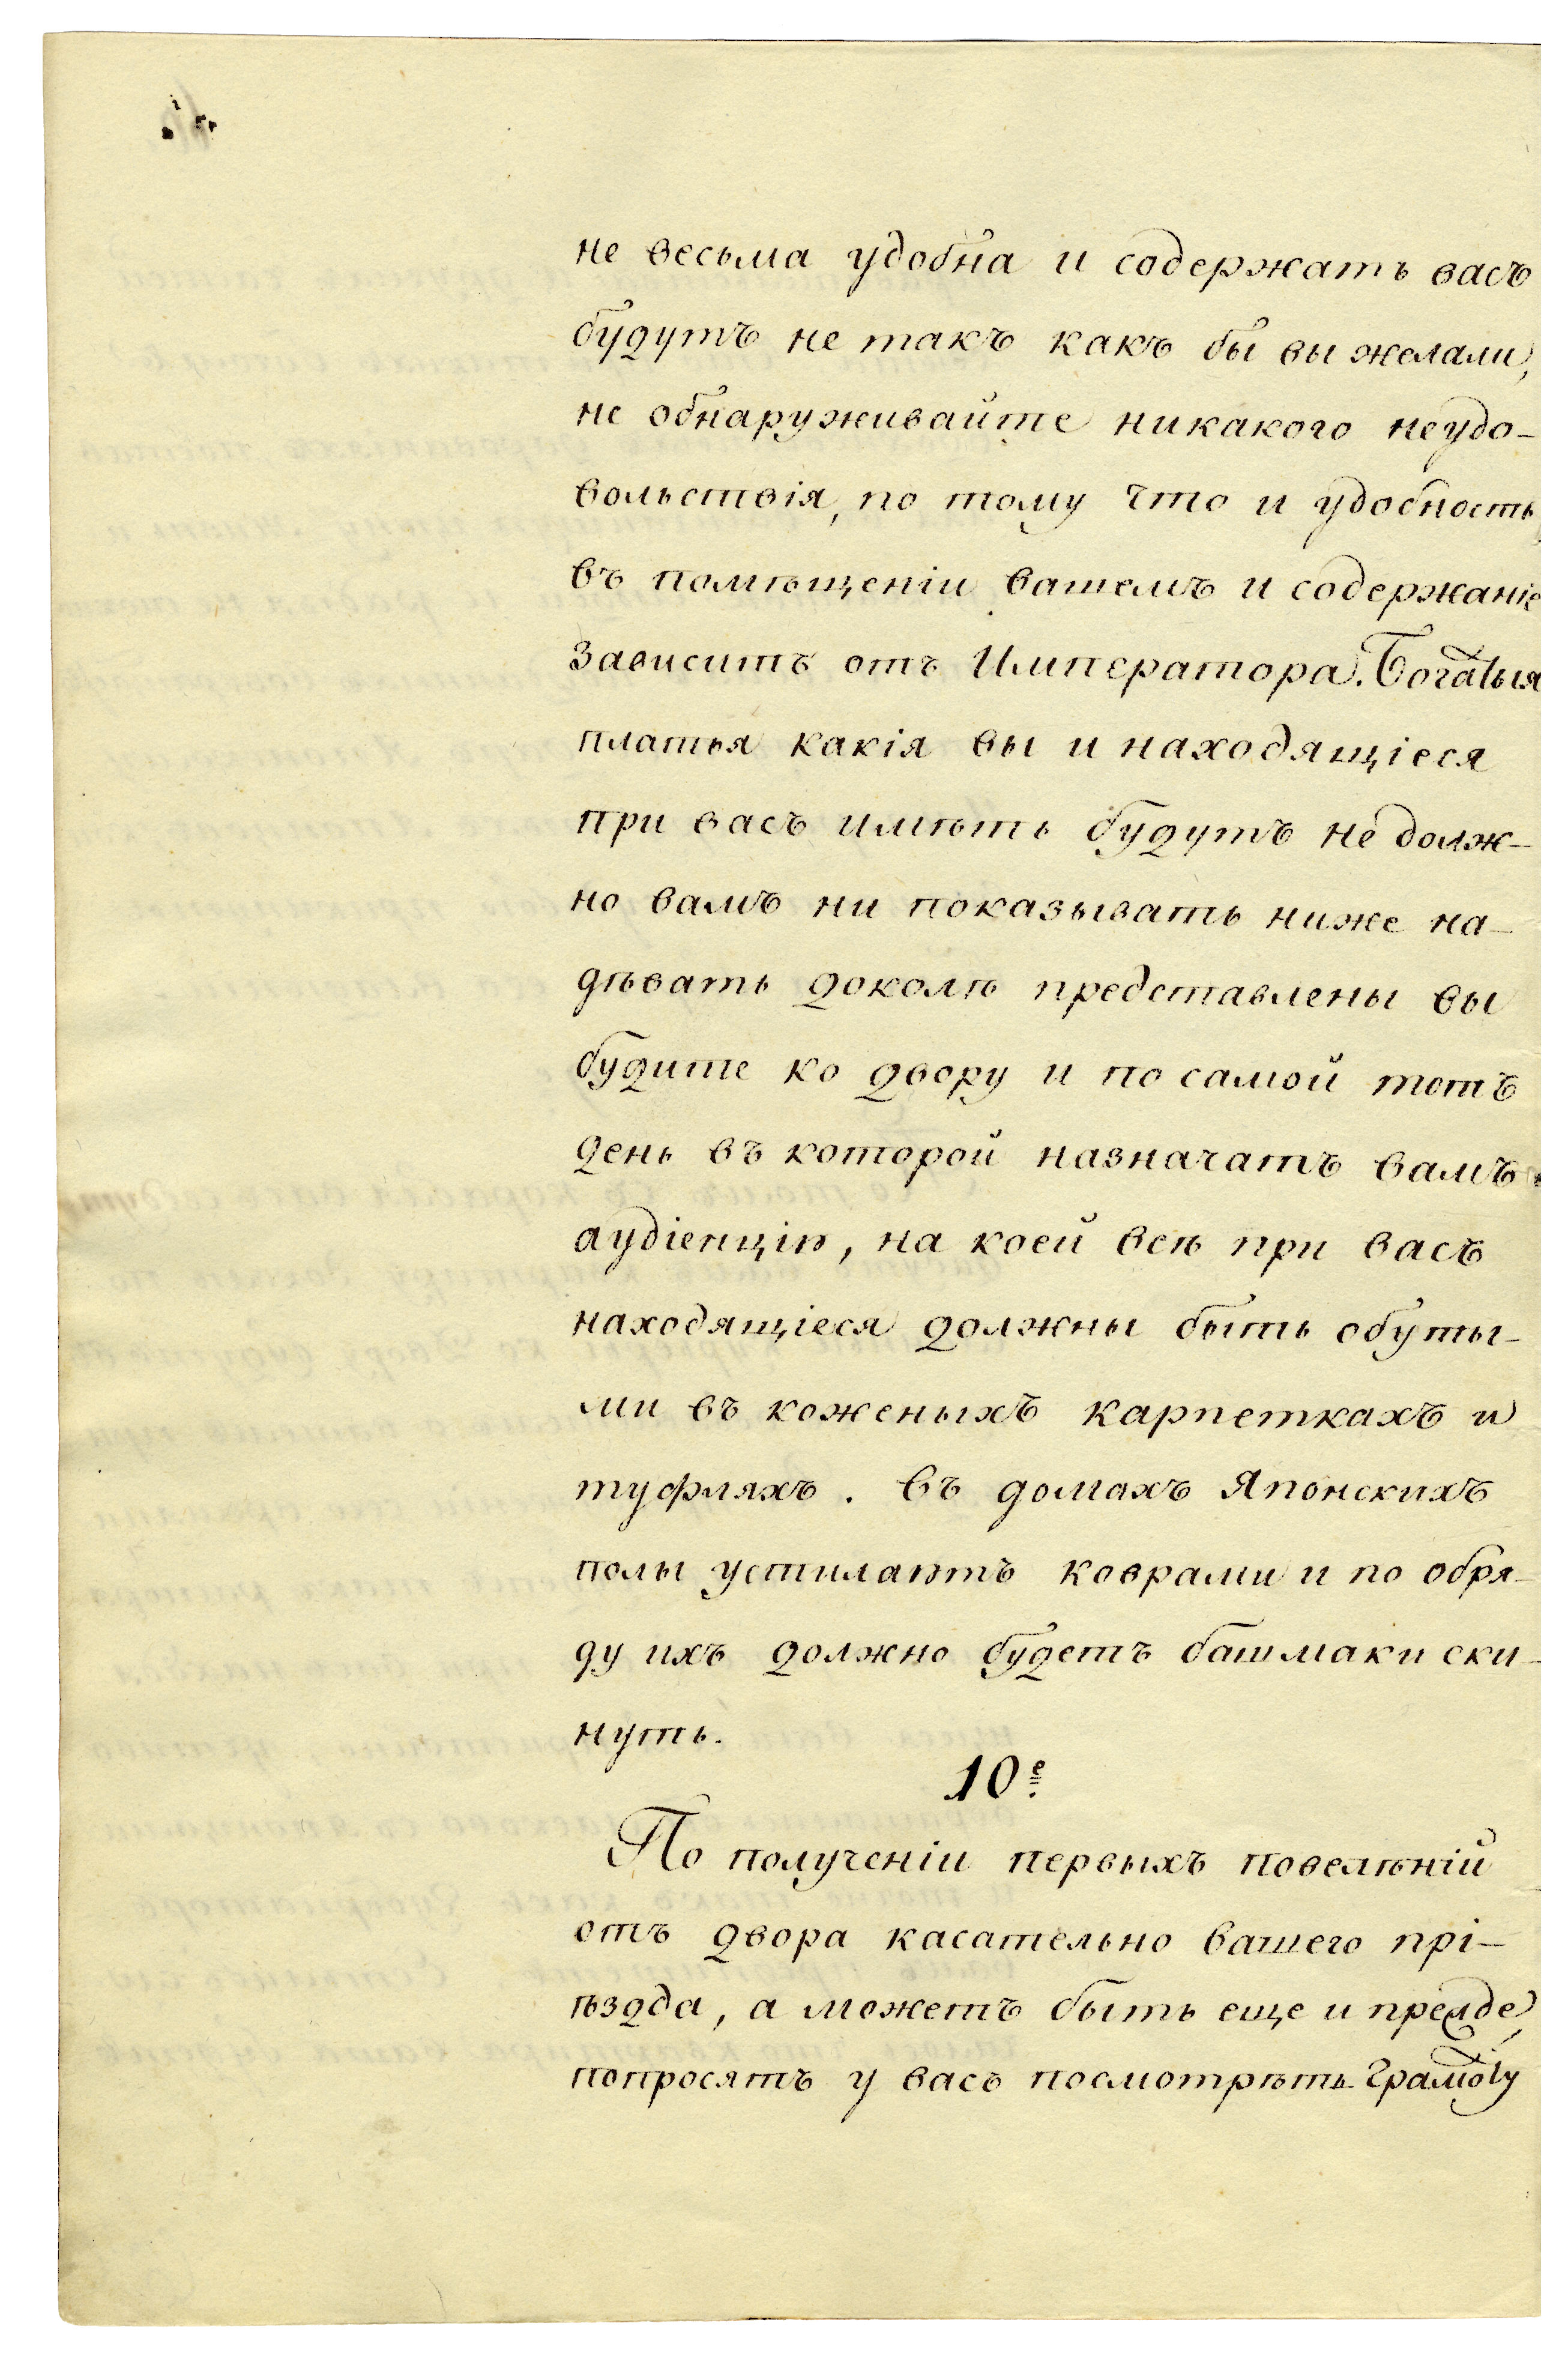 не весьма удобна и содержать васъ
будутъ не такъ какъ бы вы желали,
не обнаруживайте никакого неудо-
вольствія, по тому что и удобность
въ помѣщеніи вашемъ и содержаніе
зависитъ отъ Императора. Богатыя
платья какія вы и находящіеся
при васъ имѣть будутъ не долж-
но вамъ ни показывать ниже на-
дѣвать доколѣ представлены вы
будите ко двору и по самой тотъ
день въ которой назначатъ вамъ
аудіенцію, на коей всѣ при васъ
находящіеся должны быть обуты-
ми въ коженыхъ карпеткахъ и
туфляхъ. Въ домахъ Японскихъ
полы устилаютъ коврами и по обря-
ду ихъ должно будетъ башмаки ски-
нуть.
10е
По полученіи первыхъ повелѣній
отъ двора касательно вашего прі-
ѣзда, а можетъ быть еще и прежде,
попросятъ у васъ посмотрѣть грамоту